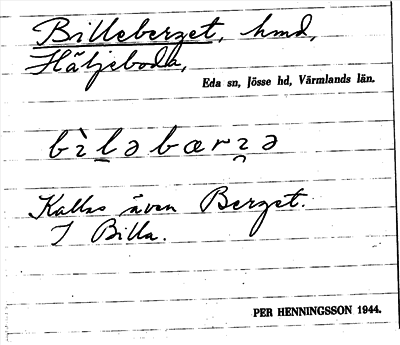 Billeberget, hmd,
Häljeboda,
Eda sn, Jösse hd, Värmlands län.
bìlə bærʒə
Kallas även Berget.
J Billa.
PER HENNINGSSON 1944.